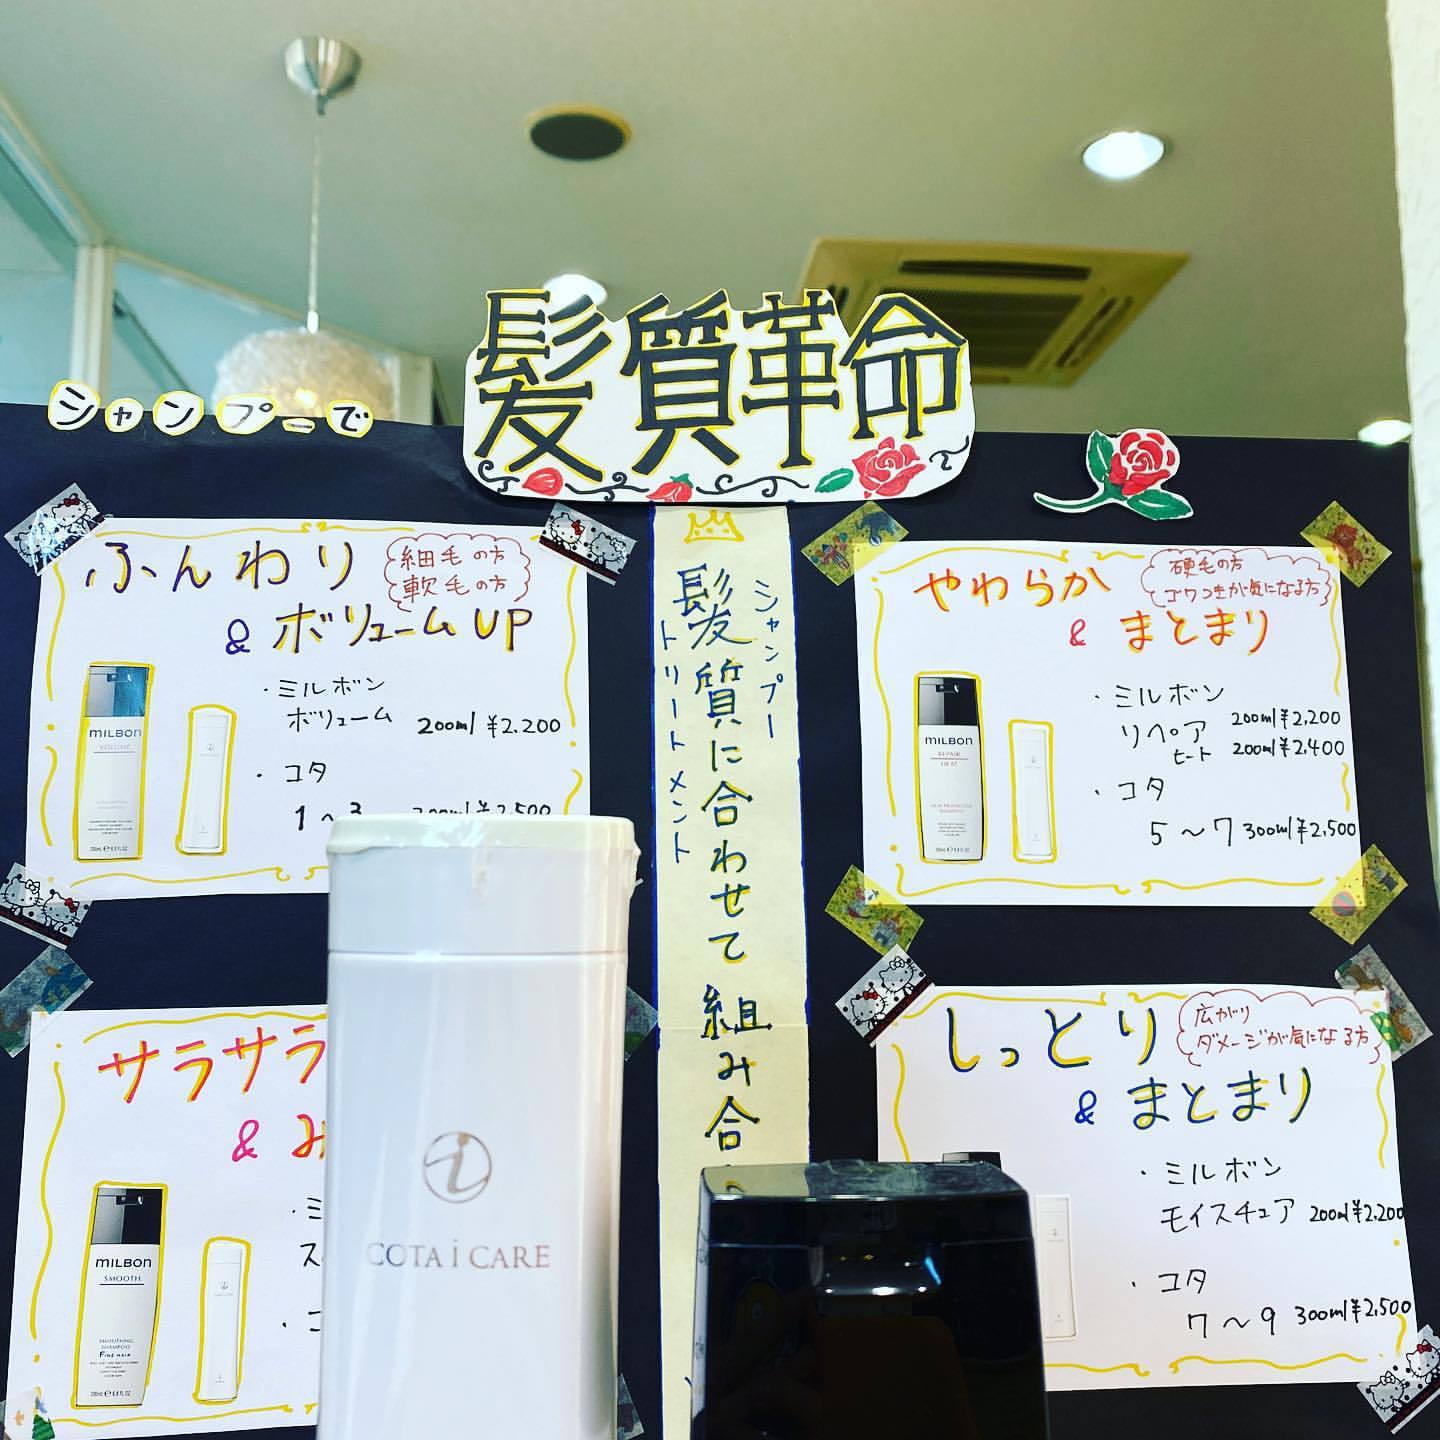 シャンプーで
髪質革命
シャンプー
トリートメント
髪質に合わせて組み合
ふんわり
& ボリュームUP
細毛の方
軟毛の方
・ミルボン
ボリューム 200ml ¥2,200
・コタ
1〜3
MILBON
VOLUME
やわらか
& まとまり
硬毛の方
ゴワつきが気になる方
・ミルボン
リペア 200ml ¥2,200
ヒート 200ml ¥2,400
・コタ
5〜7 300ml ¥2,500
MILBON
REPAIR
HEAT
サラサラ
&
MILBON
SMOOTH
SMOOTHING
SHAMPOO
FINE HAIR
しっとり
& まとまり
広がり
ダメージが気になる方
・ミルボン
モイスチュア 200ml ¥2,200
・コタ
7〜9 300ml ¥2,500
COTA i CARE